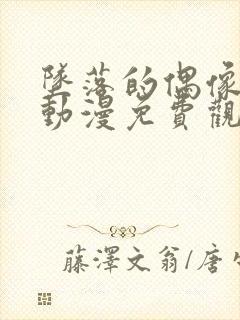 墜落的偶像
動漫免費觀
藤澤文翁/唐